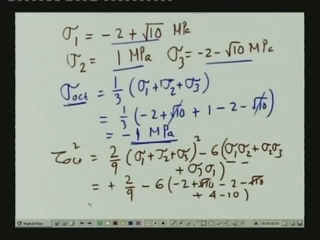 σ₁ = -2 + √10 MPa
σ₂ = 1 MPa σ₃ = -2 - √10 MPa
σoct = 1/3 (σ₁ + σ₂ + σ₃)
= 1/3 (-2 + √10 + 1 - 2 - √10)
= -1 MPa
τoct² = 2/9 (σ₁ + σ₂ + σ₃)² - 6(σ₁σ₂ + σ₂σ₃
+ σ₃σ₁)
= + 2/9 - 6(-2 + √10 - 2 - √10
+ 4 - 10)